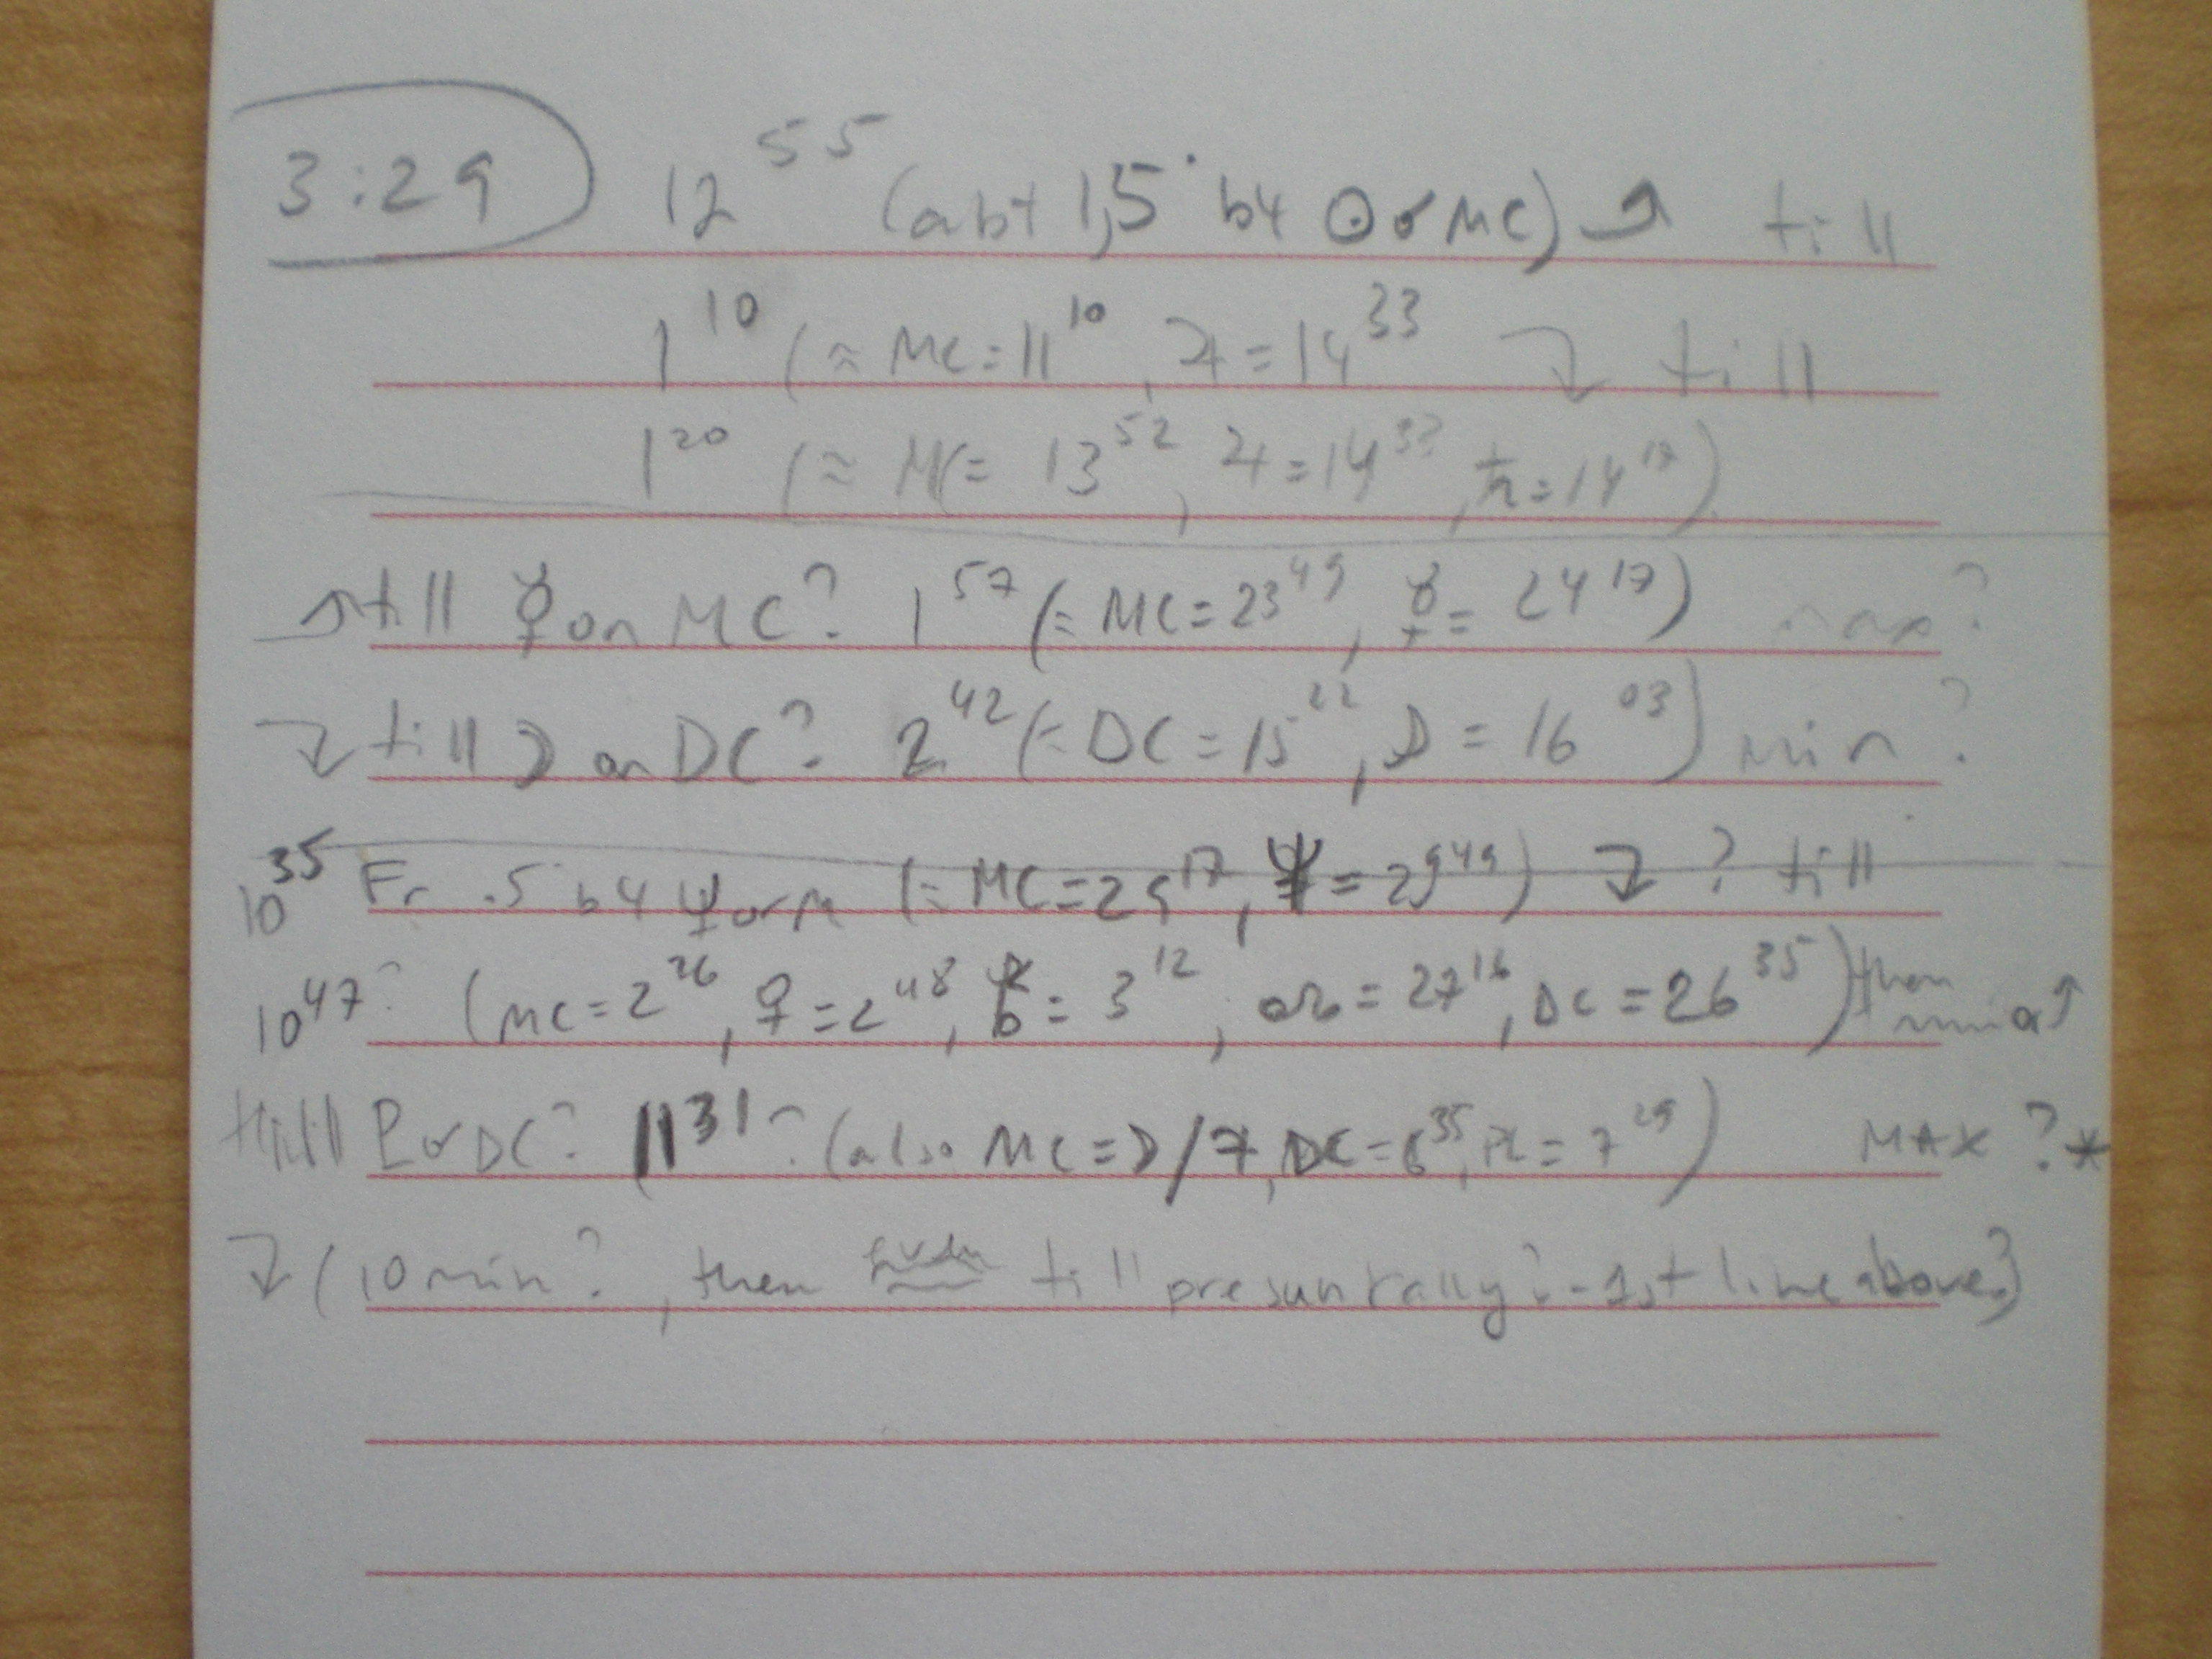 3:29 12⁵⁵ (abt 1,5° b4 ☉ ☌ MC) ⤴ till
1¹⁰ (≈ MC = 11¹⁰, ♃ = 14³³ ⤵ till
1²⁰ (≈ MC = 13⁵², ♃ = 14³³, ♄ = 14¹⁷)
⤴ till ☿ on MC? 1⁵⁷ (= MC = 23⁴⁹, ☿ = 24¹⁷) max?
⤵ till ☽ on DC? 2⁴² (= DC = 15²², ☽ = 16⁰³) min?
10³⁵ Fr .5° b4 ♆ ☌ M (= MC = 29¹⁷, ♆ = 29⁴⁹) ⤵ ? till
10⁴⁷? (MC = 2²⁶, ♀ = 2⁴⁸, = 3¹², = 27¹⁶, DC = 26³⁵) then ↑
till ♇ ☌ DC? 11³¹? (also MC = ☽/♃, DC = 6³⁵, = 7²⁹) MAX?*
⤵ (10 min?, then till line above?)